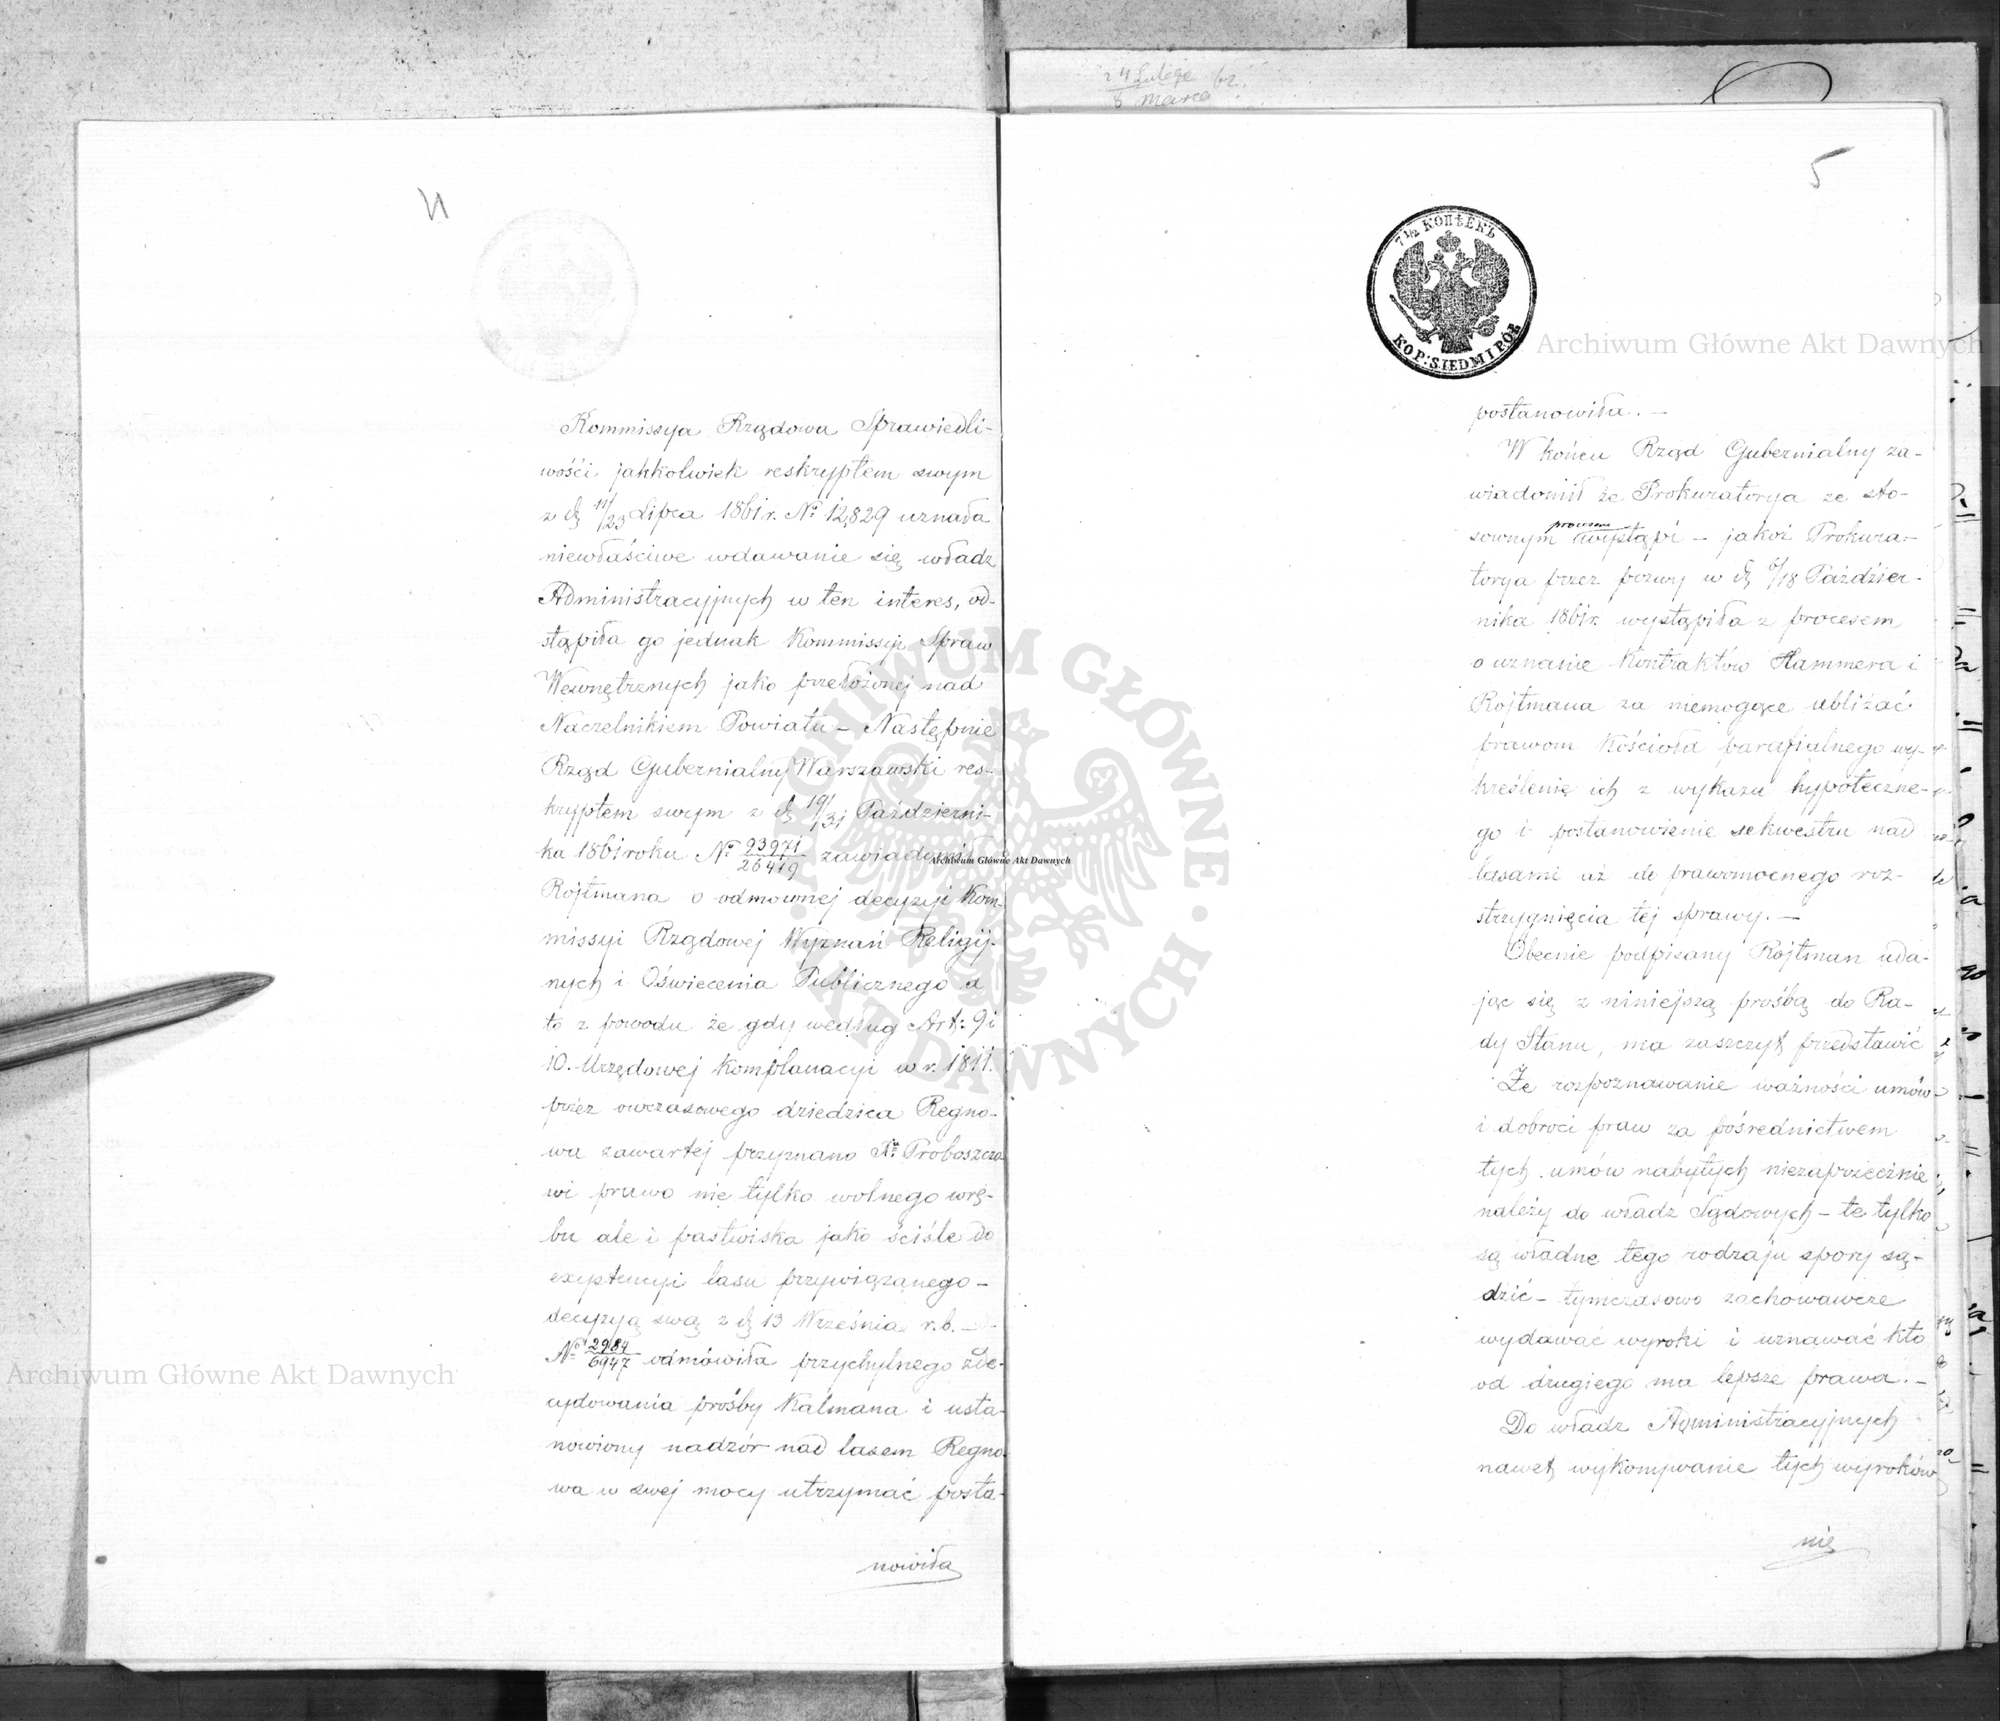 4
Kommissya Rządowa Sprawiedli-
wości jakkolwiek reskryptem swym
z d. 11/23 Lipca 1861 r. No 12,829 uznała
niewłaściwe wdawanie się władz
Administracyjnych w ten interes, od-
stąpiła go jednak Kommissyi Spraw
Wewnętrznych jako przełożonej nad
Naczelnikiem Powiatu – Następnie
Rząd Gubernialny Warszawski res-
kryptem swym z d. 19/31 Październi-
ka 1861 roku No 93971/26419 zawiadomił
Rojtmana o odmownej decyzyi Kom-
missyi Rządowej Wyznań Religij-
nych i Oświecenia Publicznego a
to z powodu że gdy według Art: 9 i
10. Urzędowej Komplanacyi w r. 1811.
przez owczasowego dziedzica Regno-
wa zawartej przyznano Xu Proboszczo
wi prawo nie tylko wolnego wrę-
bu ale i pastwiska jako ściśle do
exystencyi lasu przywiązanego –
decyzyą swą z d. 13 Września r. b. –
No 2984/6947 odmówiła przychylnego zde-
cydowania prośby Kalmana i usta-
nowiony nadzór nad lasem Regno-
wa w swej mocy utrzymać posta-
nowiła
24 Lutego 62.
8 Marca
5
7 1/2 КОПѢЕКЪ
KOP: SIEDM I PÓŁ
postanowiła. –
W końcu Rząd Gubernialny za-
wiadomił że Prokuratorya ze sto-
procesem
sownym wystąpi – jakoż Prokura-
torya przez pozwy w d. 6/18 Paździer-
nika 1861 r. wystąpiła z procesem
o uznanie kontraktów Hammera i
Rojtmana za niemogące ubliżać
prawom Kościoła parafialnego wy-
kreślenie ich z wykazu hypoteczne-
go i postanowienie sekwestru nad
lasami aż do prawomocnego roz-
strzygnięcia tej sprawy. –
Obecnie podpisany Rojtman uda-
jąc się z niniejszą prośbą do Ra-
dy Stanu, ma zaszczyt przedstawić
Że rozpoznawanie ważności umów
i dobroci praw za pośrednictwem
tych umów nabytych niezaprzecznie
należy do władz Sądowych – te tylko
są władne tego rodzaju spory są-
dzić – tymczasowo zachowawcze
wydawać wyroki i uznawać kto
od drugiego ma lepsze prawa. –
Do władz Administracyjnych
nawet wykonywanie tych wyroków
nie
Archiwum Główne Akt Dawnych
Archiwum Główne Akt Dawnych
Archiwum Główne Akt Dawnych
ARCHIWUM GŁÓWNE AKT DAWNYCH